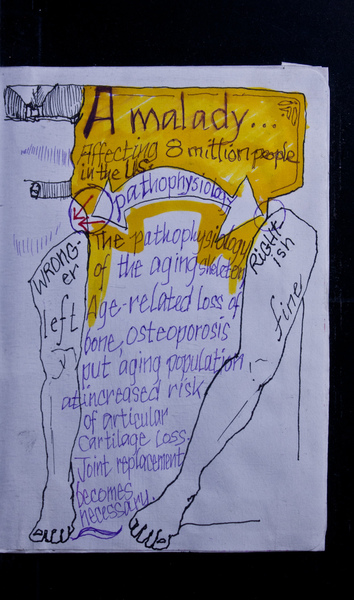 A malady...
Affecting 8 million people
in the U.S.
pathophysiology
The pathophysiology
of the aging skeleton
Age-related Loss of
bone, osteoporosis
put aging population
at increased risk
of articular
Cartilage Loss.
Joint replacement
becomes
necessary.
WRONG-
er
left
Right-
ish
fine